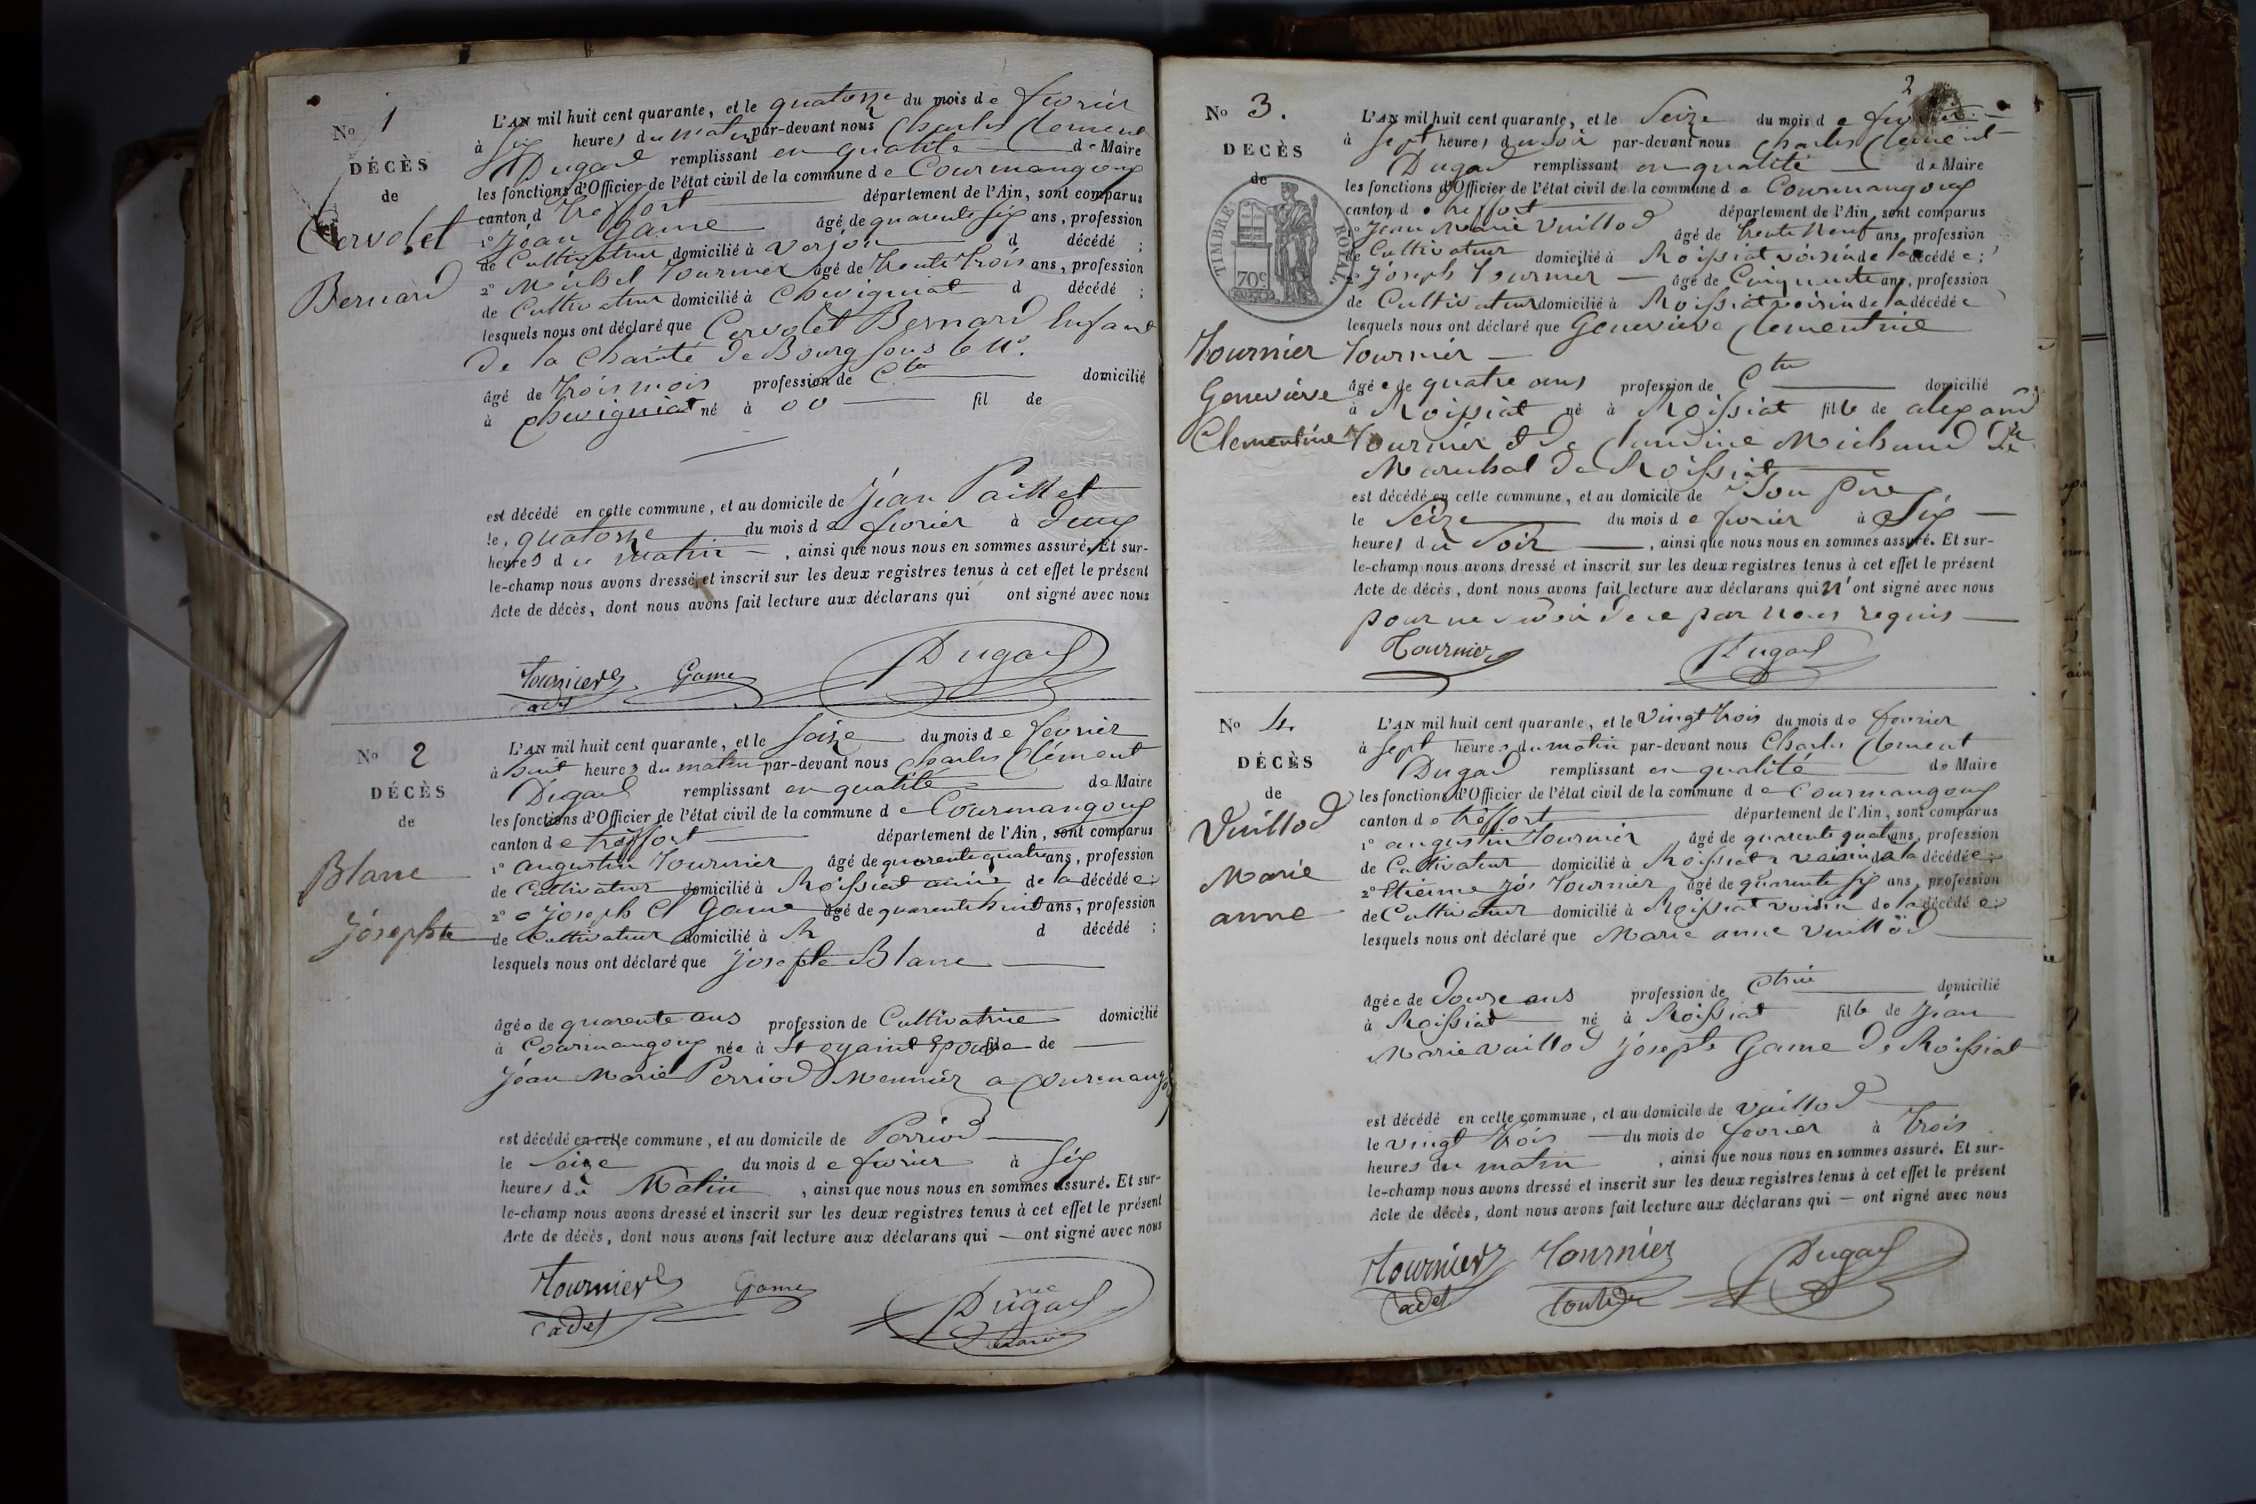 No 1
DÉCÈS
de
Cervolet
Bernard
L'AN mil huit cent quarante, et le quatorze du mois de fevrier
à six heures du matin par-devant nous Charles Clement
Dugad remplissant en qualité de Maire
les fonctions d'Officier de l'état civil de la commune de Courmangoux
canton d Treffort département de l'Ain, sont comparus
1o Jean Game âgé de quarente six ans, profession
de Cultivateur domicilié à Verjon d décédé ;
2o Michel Tournier âgé de trente trois ans, profession
de Cultivateur domicilié à Chevignat d décédé ;
lesquels nous ont déclaré que Cervolet Bernard Enfant
De la Charité de Bourg sous le No
âgé de trois mois profession de domicilié
à Chevigniat né à 00 fil de
est décédé en cette commune, et au domicile de Jean Paillet
le quatorze du mois de fevrier à deux
heures du matin, ainsi que nous nous en sommes assuré. Et sur-
le-champ nous avons dressé et inscrit sur les deux registres tenus à cet effet le présent
Acte de décès, dont nous avons fait lecture aux déclarans qui ont signé avec nous
Tournier Game Dugad
cadet
No 2
DÉCÈS
de
Blanc
Josephte
L'AN mil huit cent quarante, et le seize du mois de fevrier
à huit heures du matin par-devant nous Charles Clément
Dugad remplissant en qualité de Maire
les fonctions d'Officier de l'état civil de la commune de Courmangoux
canton de treffort département de l'Ain, sont comparus
1o augustin Tournier âgé de quarente quatre ans, profession
de Cultivateur domicilié à Roissiat de la décédée ;
2o Joseph Game âgé de quarente huit ans, profession
de Cultivateur domicilié à R d décédé ;
lesquels nous ont déclaré que Josephte Blanc
âgée de quarente ans profession de Cultivatrice domicilié
à Courmangoux née à Epouse de
Jean Marie Perriod Meunier a Courmangoux
est décédé en cette commune, et au domicile de Perriod
le seize du mois de fevrier à six
heures du Matin, ainsi que nous nous en sommes assuré. Et sur-
le-champ nous avons dressé et inscrit sur les deux registres tenus à cet effet le présent
Acte de décès, dont nous avons fait lecture aux déclarans qui — ont signé avec nous
Tournier Game Dugad
cadet
2
No 3.
DECÈS
de
TIMBRE ROYAL
70c
Tournier
Geneviève
Clementine
L'AN mil huit cent quarante, et le Seize du mois de fevrier
à sept heures du soir par-devant nous Charles Clement
Dugad remplissant en qualité de Maire
les fonctions d'Officier de l'état civil de la commune de Courmangoux
canton de treffort département de l'Ain, sont comparus
1o Jean Marie Vuillod âgé de trente neuf ans, profession
de Cultivateur domicilié à Roissiat voisin de la décédée ;
2o Joseph Tournier — âgé de Cinquante ans, profession
de Cultivateur domicilié à Roissiat voisin de la décédée
lesquels nous ont déclaré que Geneviève Clementine
Tournier —
âgée de quatre ans profession de domicilié
à Roissiat né à Roissiat fille de
Tournier et de Claudine Michaud
Marechal de Roissiat
est décédé en cette commune, et au domicile de Son père
le Seize du mois de fevrier à Six —
heures du Soir —, ainsi que nous nous en sommes assuré. Et sur-
le-champ nous avons dressé et inscrit sur les deux registres tenus à cet effet le présent
Acte de décès, dont nous avons fait lecture aux déclarans qui n'ont signé avec nous
pour ne savoir de ce par nous requis —
Tournier Dugad
No 4.
DÉCÈS
de
Vuillod
Marie
anne
L'AN mil huit cent quarante, et le Vingt trois du mois de fevrier
à sept heures du matin par-devant nous Charles Clement
Dugad remplissant en qualité de Maire
les fonctions d'Officier de l'état civil de la commune de Courmangoux
canton de treffort département de l'Ain, sont comparus
1o augustin Tournier âgé de quarente quatre ans, profession
de Cultivateur domicilié à Roissiat voisin de la décédée ;
2o Etienne Jos Tournier âgé de quarente six ans, profession
de Cultivateur domicilié à Roissiat voisin de la décédée ;
lesquels nous ont déclaré que Marie anne Vuillod
âgée de douze ans profession de ctrice domicilié
à Roissiat né à Roissiat fille de Jean
Marie Vuillod Josephte Game de Roissiat
est décédé en cette commune, et au domicile de Vuillod
le vingt trois du mois de fevrier à trois
heures du matin, ainsi que nous nous en sommes assuré. Et sur-
le-champ nous avons dressé et inscrit sur les deux registres tenus à cet effet le présent
Acte de décès, dont nous avons fait lecture aux déclarans qui — ont signé avec nous
Tournier Tournier Dugad
cadet